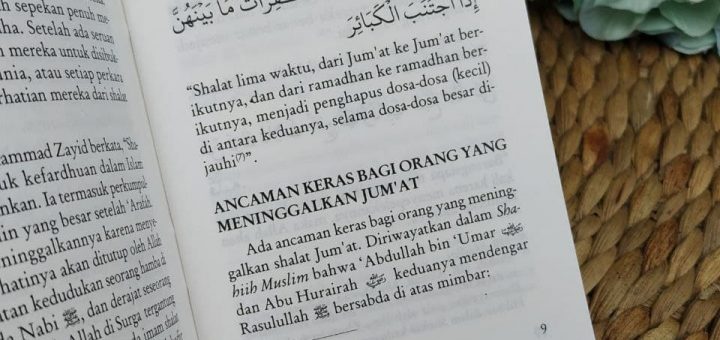 sepikan penuh me-
ha. Setelah ada seruan
mereka untuk disibuk-
unia, atau setiap perkara
erhatian mereka dari shalat
ammad Zayid berkata, "Sha-
uk kefardhuan dalam Islam
nkan. Ia termasuk perkumpul-
in yang besar setelah 'Arafah.
eninggalkannya karena menye-
hatinya akan ditutup oleh Allah
kan kedudukan seorang hamba di
Nabi ﷺ, dan derajat seseorang
Allah di Surga tergantung
imam shalat
مَا بَيْنَهُنَّ
إِذَا اجْتَنَبَ الْكَبَائِرَ
"Shalat lima waktu, dari Jum'at ke Jum'at ber-
ikutnya, dan dari ramadhan ke ramadhan ber-
ikutnya, menjadi penghapus dosa-dosa (kecil)
di antara keduanya, selama dosa-dosa besar di-
jauhi(7)".
ANCAMAN KERAS BAGI ORANG YANG
MENINGGALKAN JUM'AT
Ada ancaman keras bagi orang yang mening-
galkan shalat Jum'at. Diriwayatkan dalam Sha-
hiih Muslim bahwa 'Abdullah bin 'Umar
dan Abu Hurairah keduanya mendengar
Rasulullah ﷺ bersabda di atas mimbar:
9